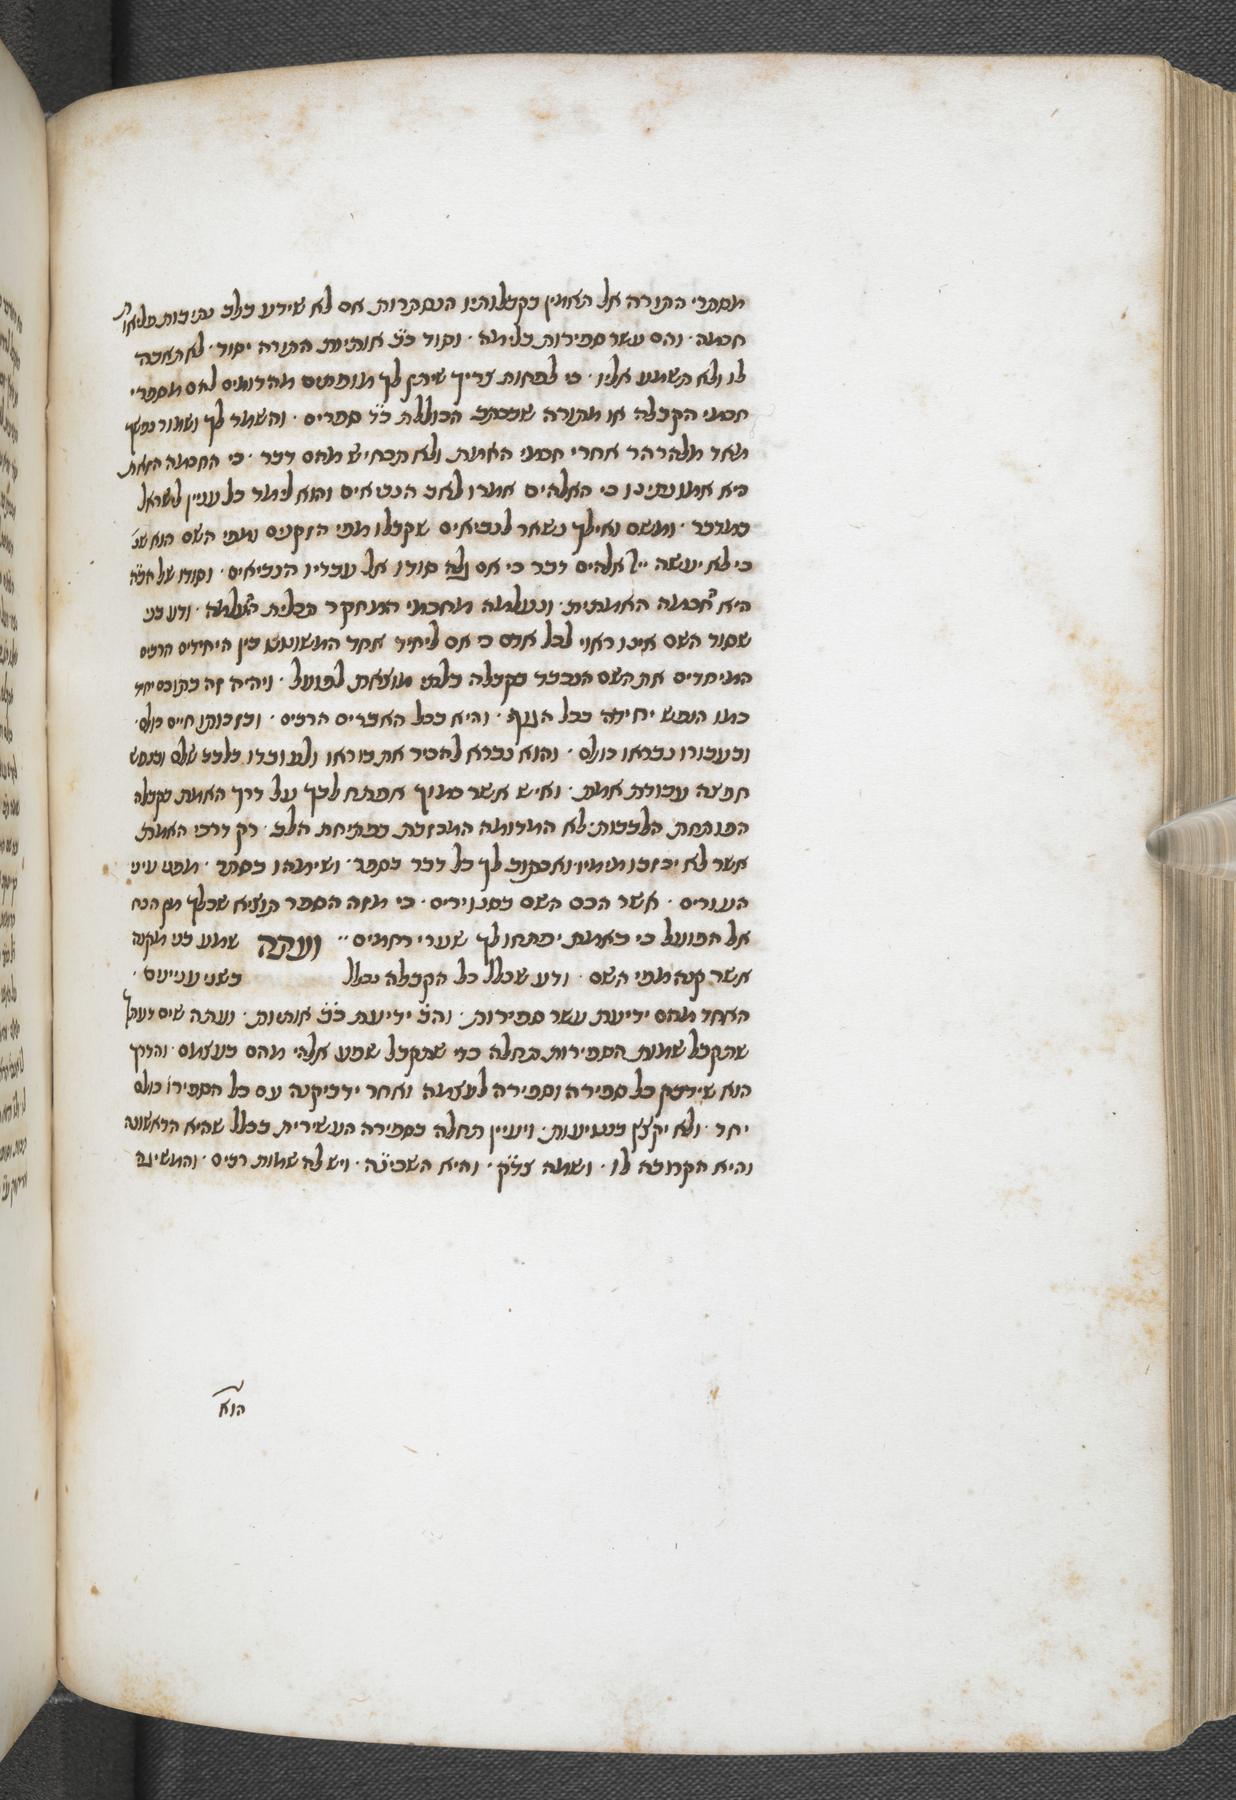 מסתרי התורה אל תאמין בקבלותיו הנסתרות אם לא שידע בלב נתיבות פליאות
חכמה · והם עשר ספירות בלימה · וסוד כ״ב אותיות התורה יסוד · לא תאבה
לו ולא תשמע אליו · כי לפחות צריך שיתן לך מופתים מהדומים להם מספרי
חכמי הקבלה או מתורה שבכתב הכוללת כ״ד ספרים · והשמר לך ושמור נפשך
מאד מלהרהר אחרי חכמי האמת ולא תכחיש מהם דבר · כי החכמה הזאת
היא אמונתינו כי האלהים אמרו לאב הנביאים והוא לימד כל עניין לישראל
במדבר · ומשם ואילך נשאר לנביאים שקבלו מפי הזקנים ומפי השם הוא שנ׳
כי לא יעשה ייי׳ אלהים דבר כי אם גלה סודו אל עבדיו הנביאים · וסודו של הב״ה
היא חכמה האמתית · ונעלמה מחכמי המחקר תכלית העלמה · ודע בני
שסוד השם איננו ראוי לכל אדם כי אם ליחיד אחד המשוטט בין היחידים הרבים
המיחדים את השם הנכבד בקבלה בלתי מוצאת לפועל · ויהיה זה בתוכם יחיד
כמו הנפש יחידה בכל הגוף · והיא בכל האברים הרבים · ובזכותו חיים כולם ·
ובעבורו נבראו כולם · והוא נברא להכיר את בוראו ולעובדו בלבב שלם ובנפש
חפצה עבודת אמת · ואיש אשר כמוך אפתח לבך על דרך האמת בקבלה
הפותחת הלבבות · לא המדומה המכזבת בפתיחת הלב · רק דרכי האמת
אשר לא יכזבו מימיו ואכתוב לך כל דבר בספר · ושימהו בסתר · מפני עיני
העורים · אשר הכם השם בסנוירים · כי מזה הספר תוציא שכלך מן הכח
אל הפועל כי באמת יפתחו לך שערי רחמים ·· ועתה שמע בני מקנה
אשר קנה מפי השם · ודע שכלל כל הקבלה נכלל בשני עניינים ·
האחד מהם ידיעת עשר ספירות · והב׳ ידיעת כ״ב אותיות · ועתה שים דעתך
שתקבל שמות הספירות תחלה כדי שתקבל שפע אלהי מהם בעצמם · והדרך
הוא שידבק כל ספירה וספירה לעצמה ואחר ידביקנה עם כל הספירו׳ כולם
יחד · ולא יקצץ בנטיעות · ויעיין תחלה בספירה העשירית בכלל שהיא הראשונה
והיא הקרובה לו · ושמה צד״ק · והיא השכינ״ה · ויש לה שמות רבים · והמשיגה
הוא